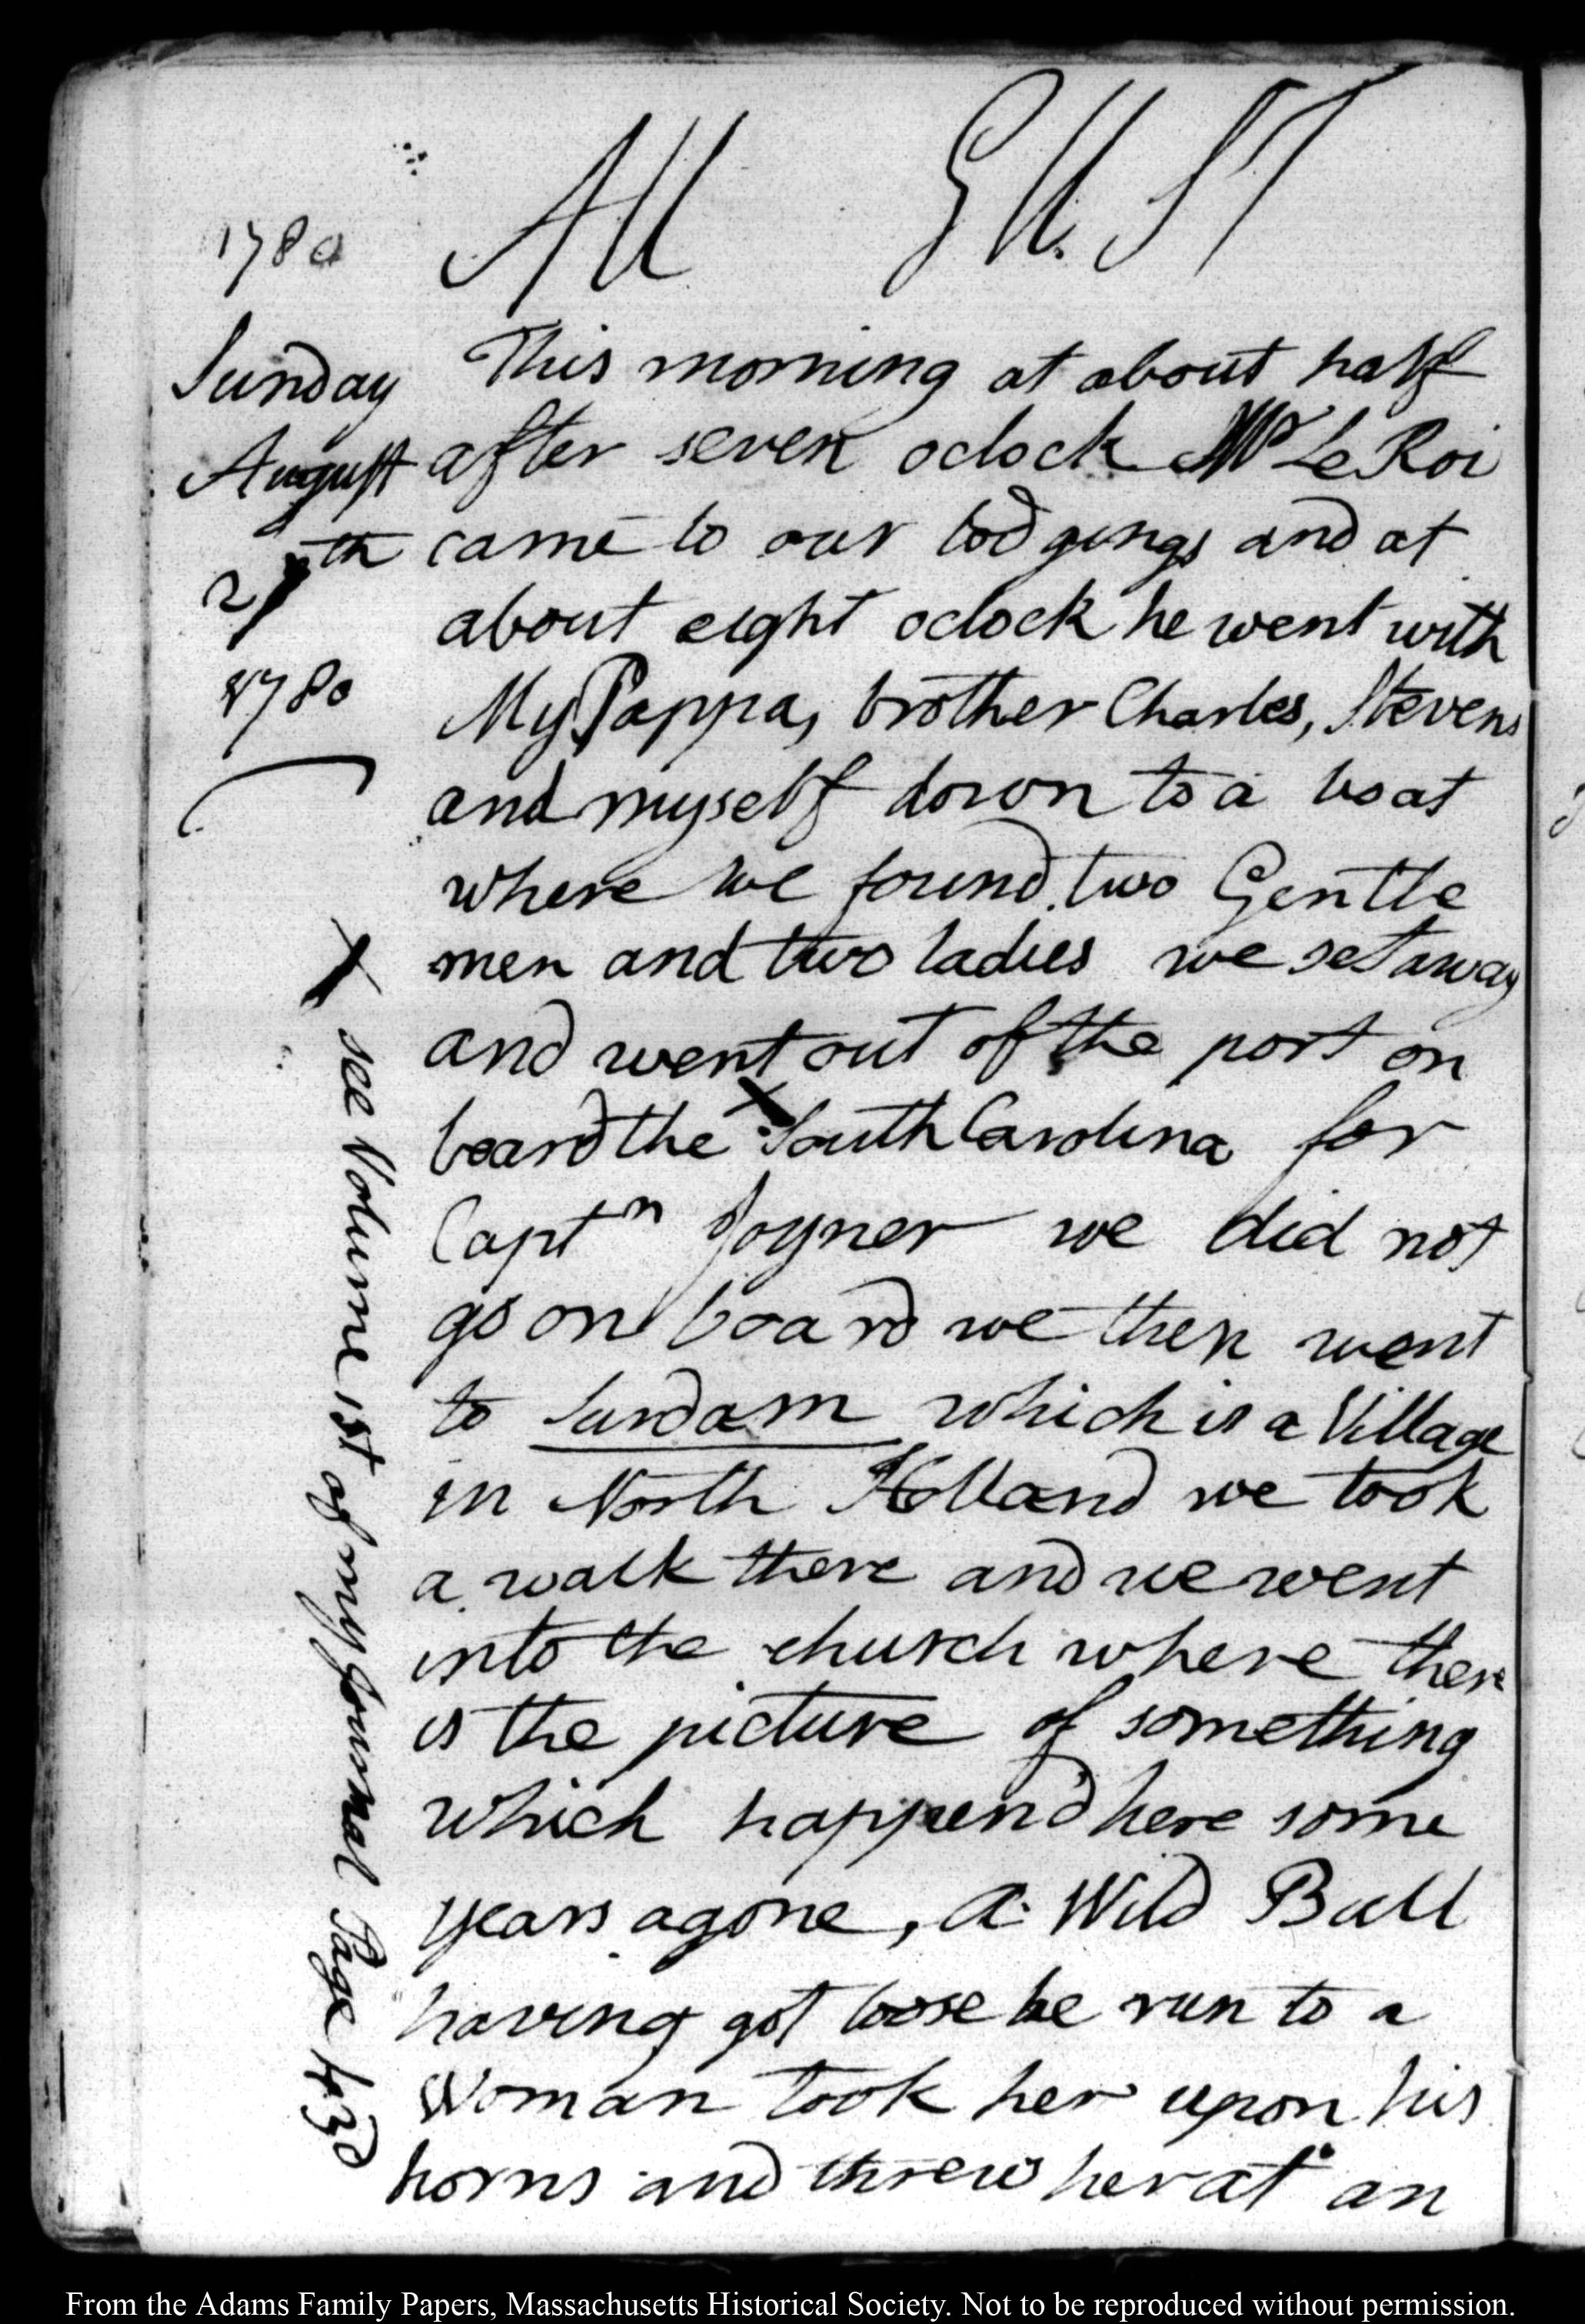 AU GUST
1780
Sunday
August
27th
1780
This morning at about half
after seven oclock Mr Le Roi
came to our lodgings and at
about eight oclock he went with
My Pappa, brother Charles, Stevens
and myself down to a boat
where we found two Gentle
men and two ladies we set away
and went out of the port on
board the X South Carolina for
Captn Joyner we did not
go on board we then went
to Sardam which is a Village
in North Holland we took
a walk there and we went
into the church where there
is the picture of something
which happen'd here some
years agone, a Wild Bull
having got loose he run to a
Woman took her upon his
horns and threw her at an
X see Volume 1st of my Journal Page 43d
From the Adams Family Papers, Massachusetts Historical Society. Not to be reproduced without permission.